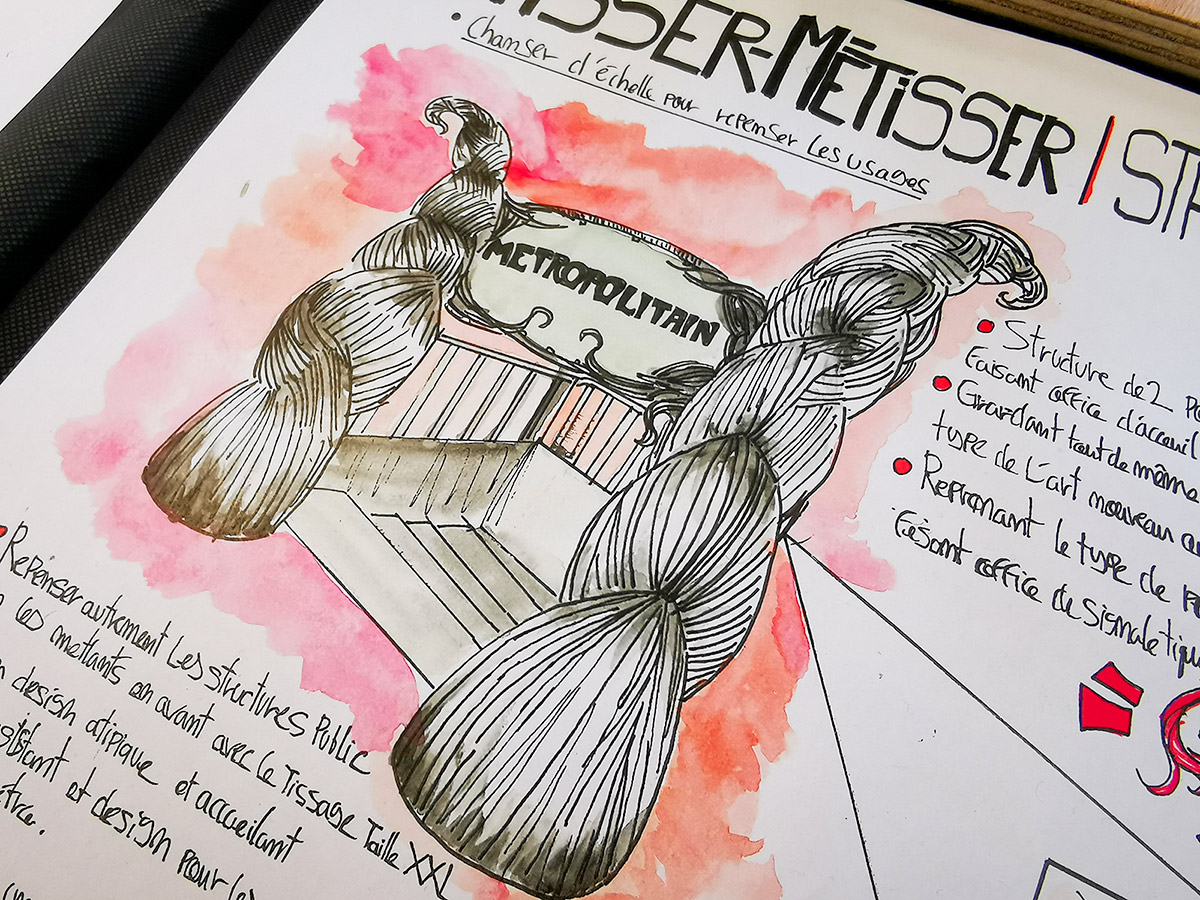 ISSER-MÉTISSER / STR
• Changer d'échelle pour repenser les usages
METROPOLITAIN
• Structure de 2 Po
faisant office d'acceuil
• Gardant tout de même
type de L'art nouveau au
• Reprenant le type de
faisant office de sismaletique
• Repenser autrement Les structures Public
les mettants en avant avec le Tissage Taille XXL
design atipique et accueilant
et design pour les